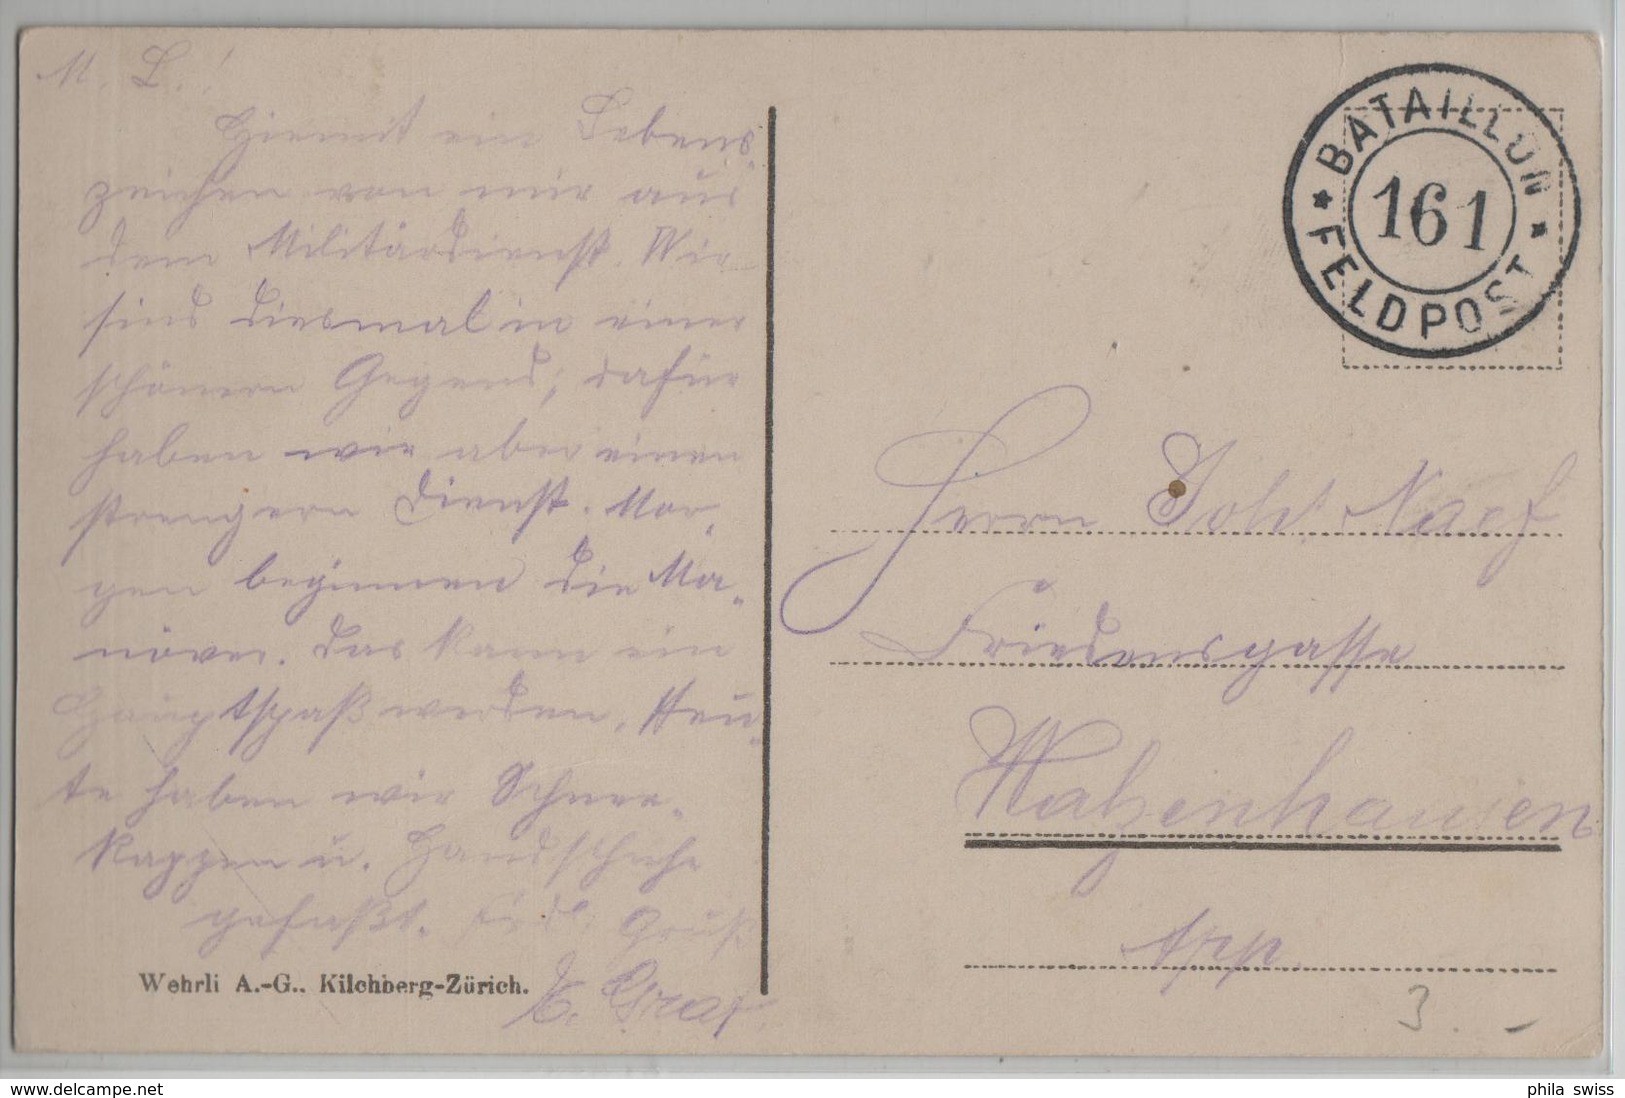 M. L.!
Hiemit ein Lebens-
zeichen von mir aus
dem Militärdienst. Wir
sind diesmal in einer
schönern Gegend, dafür
haben wir aber einen
strengern Dienst. Mor-
gen beginnen die Ma-
növer. Das kann ein
Hauptspaß werden. Heu-
te haben wir Schnee-
kappen u. Handschuhe
gefaßt. Frdl. Gruß
E. Graf
Wehrli A.-G., Kilchberg-Zürich.
BATAILLON
161
FELDPOST
Herrn Joh. Naef
Friedensgasse
Walzenhausen
App.
3.-
www.delcampe.net
phila_swiss